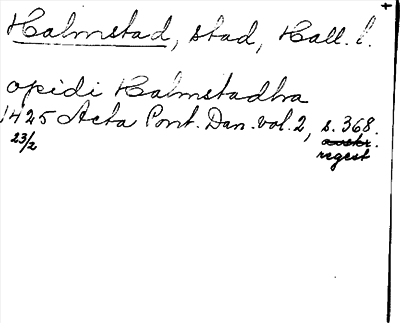 Halmstad, stad, Hall. l.
opidi Halmstadhra
1425 Acta Pont. Dan. vol. 2, s. 368.
23/2 avskr.
regest